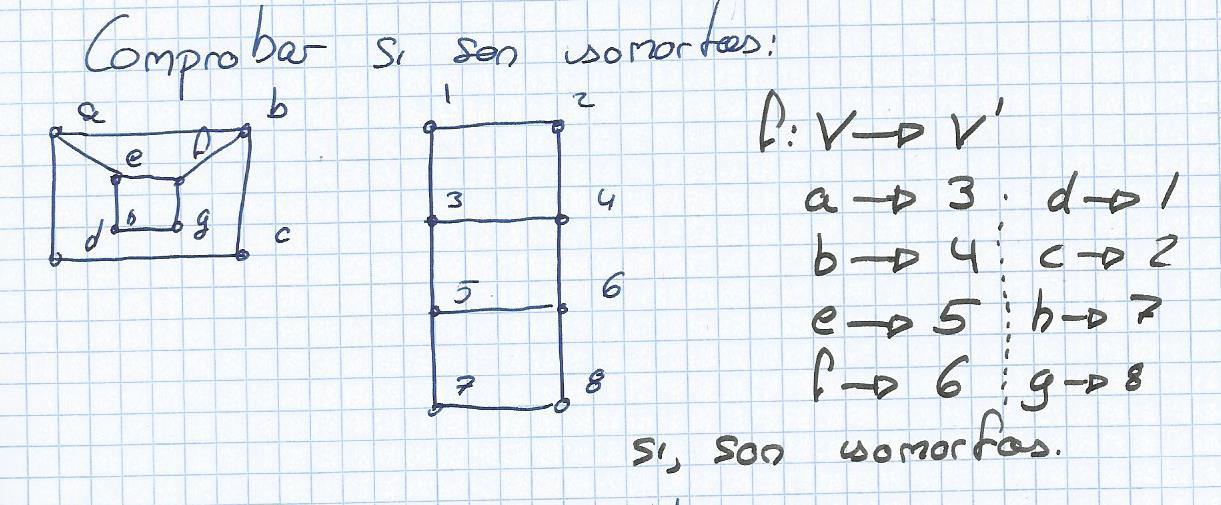 Comprobar si son isomorfos:
a b
e f
h g
d c
1 2
3 4
5 6
7 8
f: V → V'
a → 3 d → 1
b → 4 c → 2
e → 5 h → 7
f → 6 g → 8
si, son isomorfos.